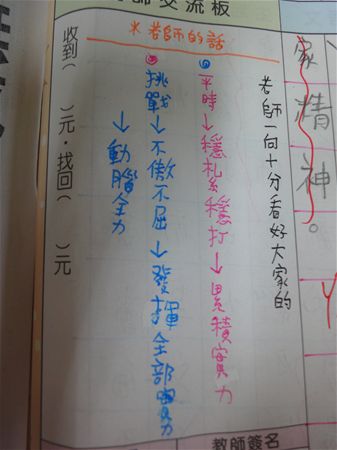 師交流板
家精神。
老師一向十分看好大家的
※老師的話
平時→穩紮穩打→累積實力
挑戰→不傲不屈→發揮全部實力
→動腦全力
收到( )元,找回( )元
教師簽名